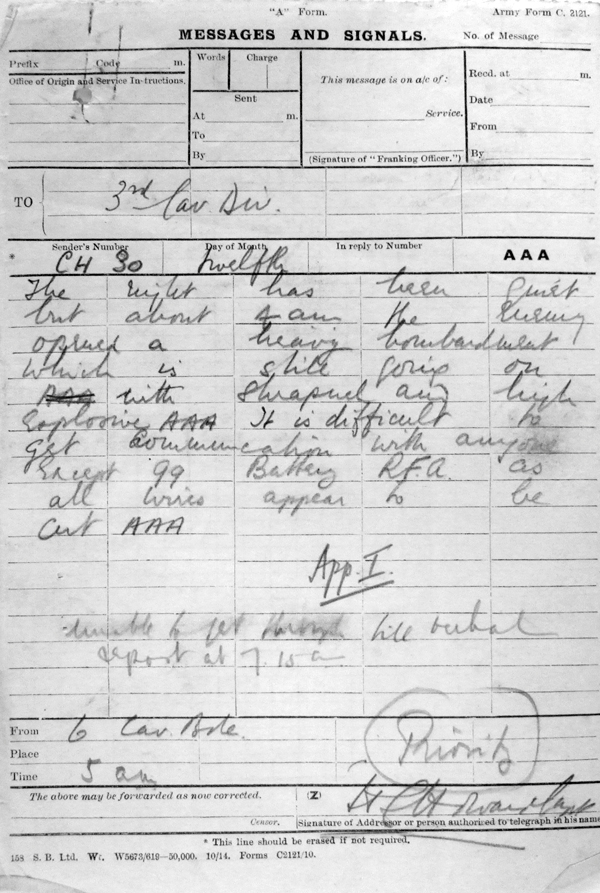 "A" Form.
Army Form C. 2121.
MESSAGES AND SIGNALS.
No. of Message
Prefix Code m.
Words Charge
This message is on a/c of:
Recd. at m.
Office of Origin and Service Instructions.
Sent
Date
At m.
Service.
From
To
By
(Signature of "Franking Officer.")
By
TO 3rd Cav Div.
Sender's Number Day of Month In reply to Number AAA
CH 30 Twelfth
The night has been quiet
but about 4 am the Enemy
opened a heavy bombardment
which is still going on
AAA with Shrapnel and high
Explosive AAA It is difficult to
get communication with anyone
Except 99 Battery R.F.A. as
all wires appear to be
cut AAA
App. I.
unable to get through till verbal
report at 7.15 a
From 6 Cav. Bde.
Place
Priority
Time 5 am
The above may be forwarded as now corrected. (Z)
Censor. Signature of Addressor or person authorised to telegraph in his name
* This line should be erased if not required.
458 S. B. Ltd. Wt. W5673/619—50,000. 10/14. Forms C2121/10.